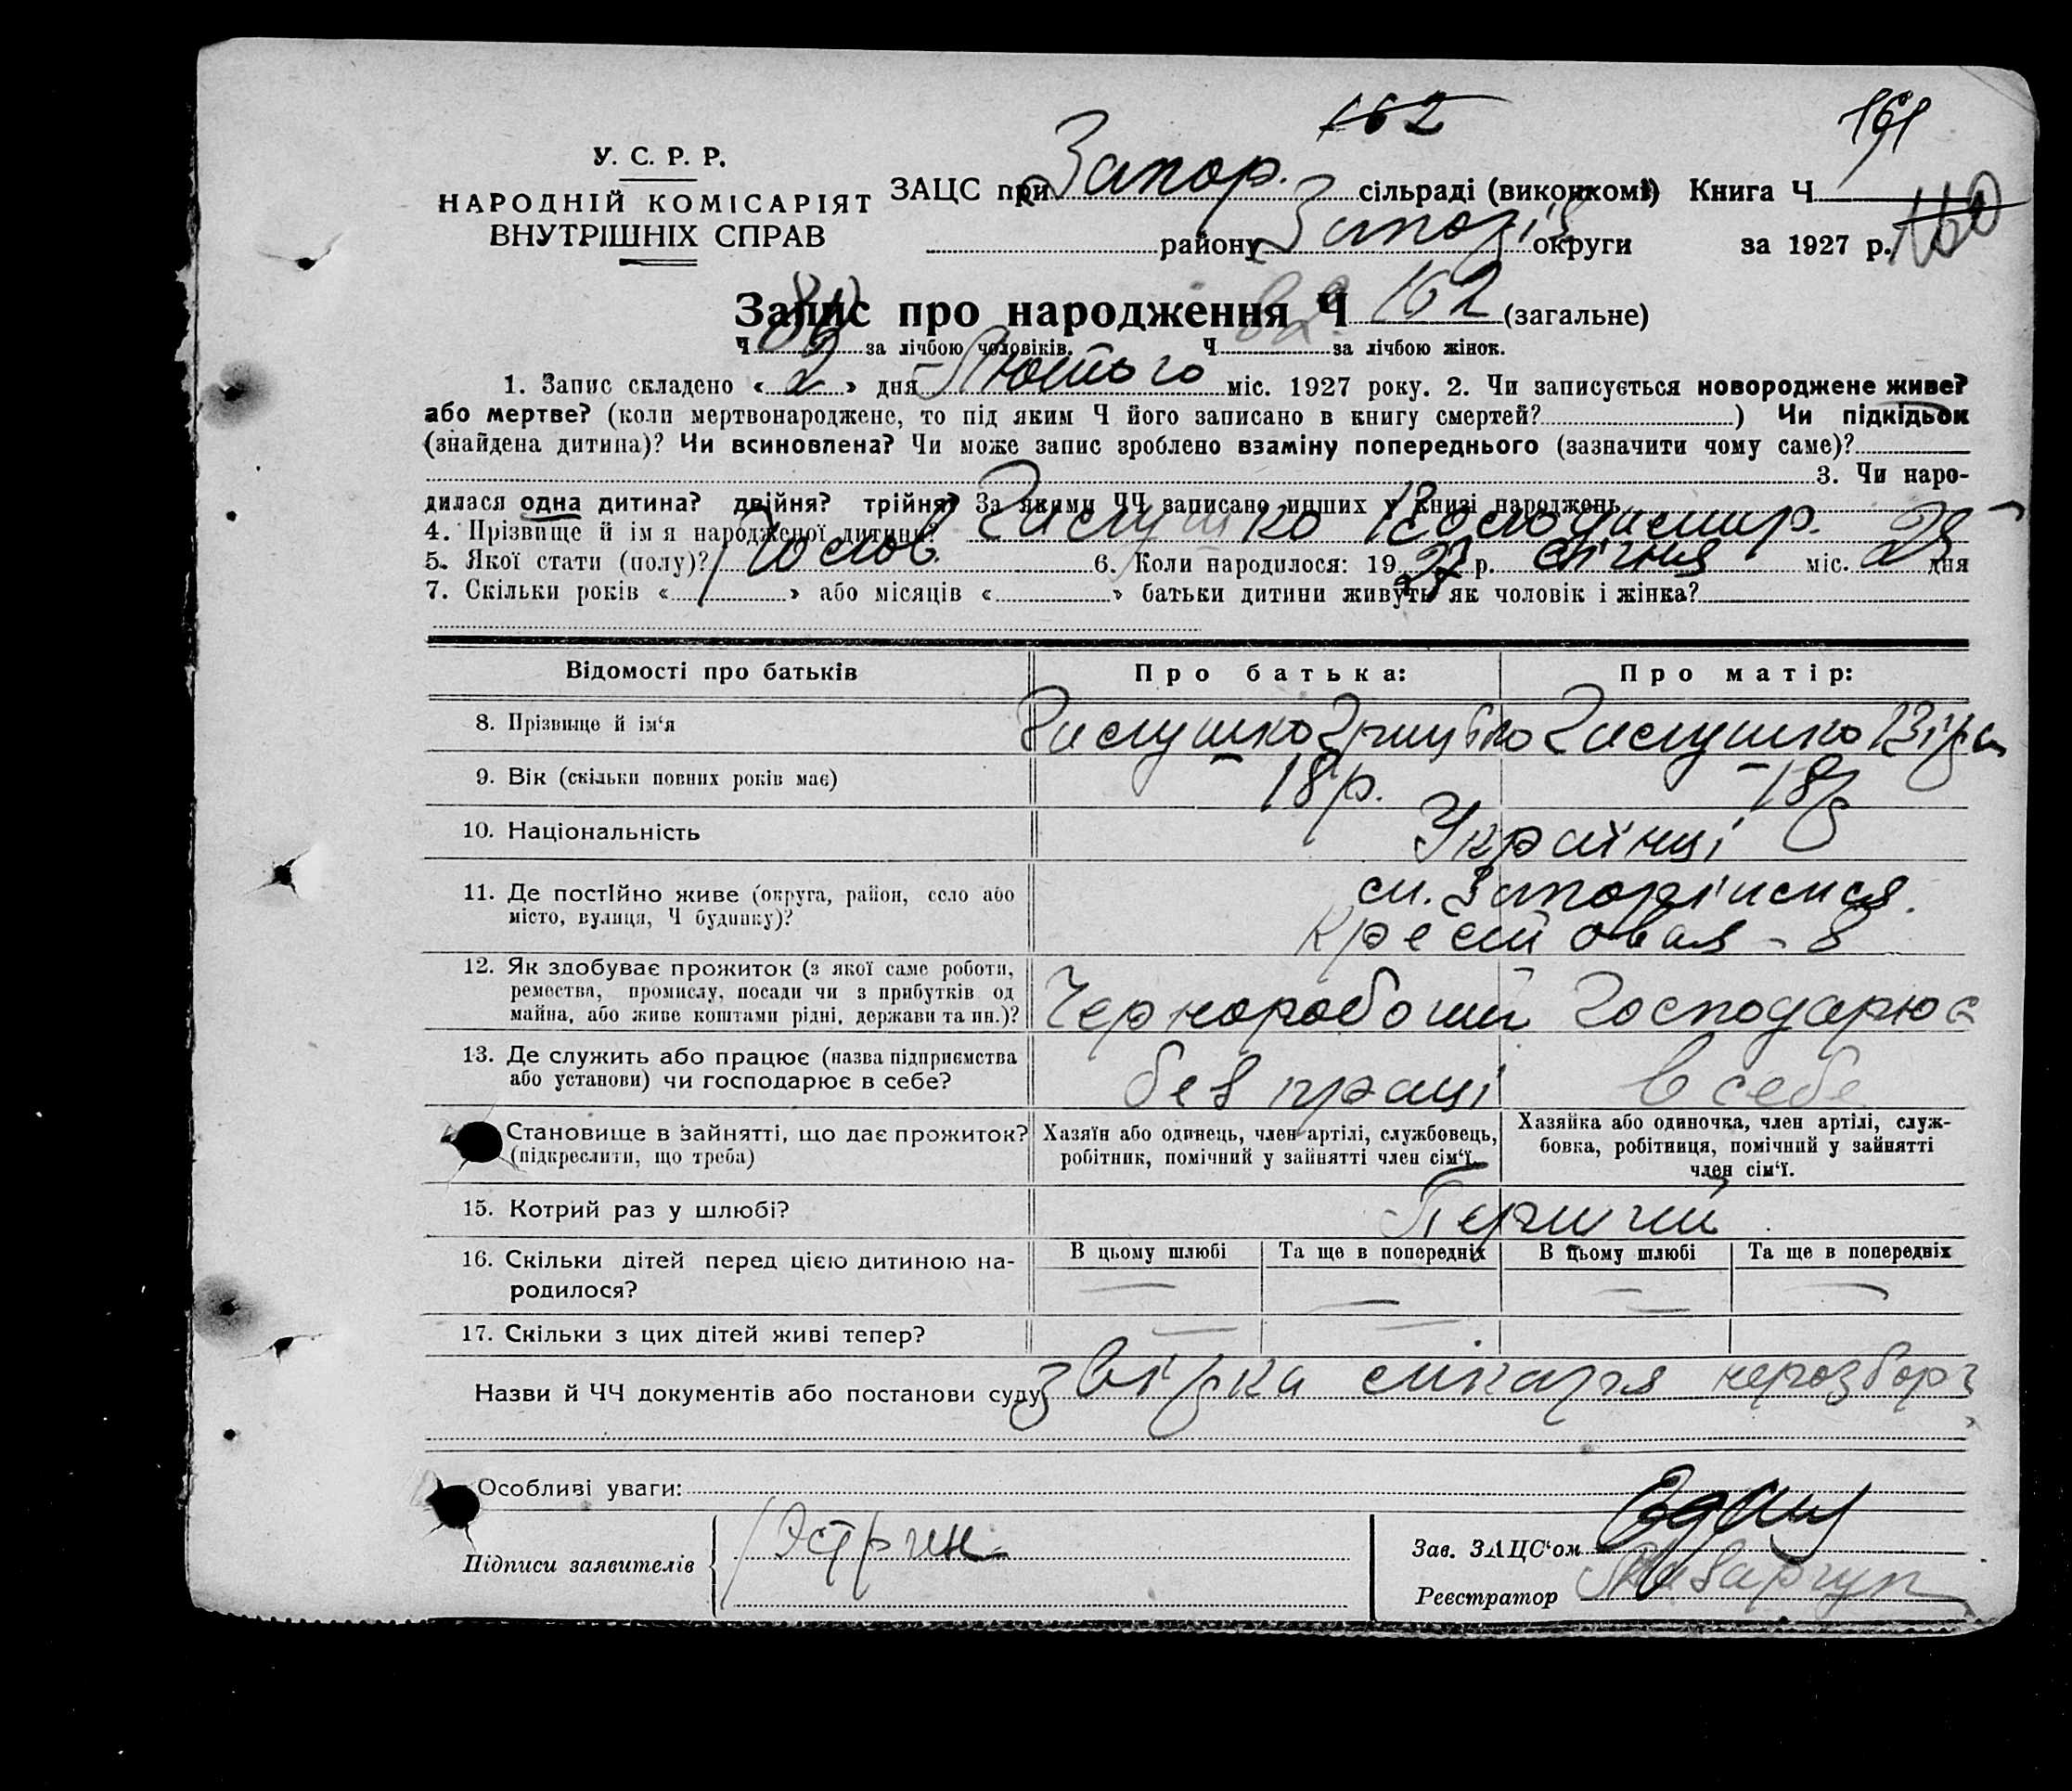 162
161
У. С. Р. Р.
НАРОДНІЙ КОМІСАРІЯТ
ВНУТРІШНІХ СПРАВ
ЗАЦС при Запор. сільраді (виконкомі) Книга Ч 160
району Запоріз округи за 1927 р.
Запис про народження Ч 162 (загальне)
Ч 80 за лічбою чоловіків. Ч 82 за лічбою жінок.
1. Запис складено « 2 » дня Лютого міс. 1927 року. 2. Чи записується новороджене живе?
або мертве? (коли мертвонароджене, то під яким Ч його записано в книгу смертей? ) Чи підкідьок
(знайдена дитина)? Чи всиновлена? Чи може запис зроблено взаміну попереднього (зазначити чому саме)?
3. Чи наро-
дилася одна дитина? двійня? трійня? За якими ЧЧ записано инших у книзі народжень
4. Прізвище й ім я народженої дитини? Гислушко Володимир.
5. Якої стати (полу)? Чолов. 6. Коли народилося: 1927 р. січня міс. 25 дня
7. Скільки років « » або місяців « » батьки дитини живуть як чоловік і жінка?
Відомості про батьків Про батька: Про матір:
8. Прізвище й ім‘я Гислушко Грицько Гислушко Віра
9. Вік (скільки повних років має) 18 р. 18 р
10. Національність Українці
11. Де постійно живе (округа, район, село або
місто, вулиця, Ч будинку)? м. Запоріжжя.
Крестовая - 8
12. Як здобуває прожиток (з якої саме роботи,
ремества, промислу, посади чи з прибутків од
майна, або живе коштами рідні, держави та ин.)? Чернороbочий Господарює
13. Де служить або працює (назва підприємства
або установи) чи господарює в себе? без праці в себе
Становище в зайнятті, що дає прожиток?
(підкреслити, що треба)
Хазяїн або одинець, член артілі, службовець,
робітник, помічний у зайнятті член сім‘ї.
Хазяйка або одиночка, член артілі, служ-
бовка, робітниця, помічний у зайнятті
член сім‘ї.
15. Котрий раз у шлюбі? Перший
16. Скільки дітей перед цією дитиною на-
родилося?
В цьому шлюбі Та ще в попередніх В цьому шлюбі Та ще в попередніх
17. Скільки з цих дітей живі тепер?
Назви й ЧЧ документів або постанови суду звірка лікаря нерозборч
Особливі уваги:
Підписи заявителів Эстрин
Зав. ЗАЦС‘ом
Реєстратор